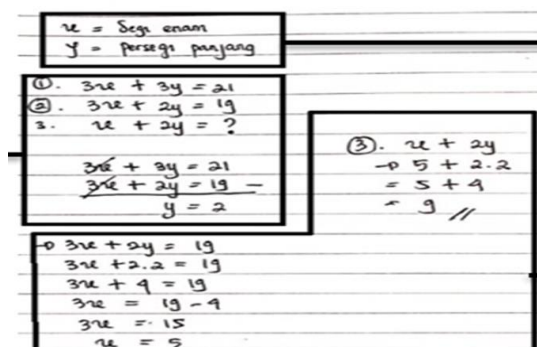 x = Segi enam
y = persegi panjang
①. 3x + 3y = 21
②. 3x + 2y = 19
3. x + 2y = ?
3x + 3y = 21
3x + 2y = 19 –
y = 2
→ 3x + 2y = 19
3x + 2.2 = 19
3x + 4 = 19
3x = 19 - 4
3x = 15
x = 5
③. x + 2y
→ 5 + 2.2
= 5 + 4
= 9 //